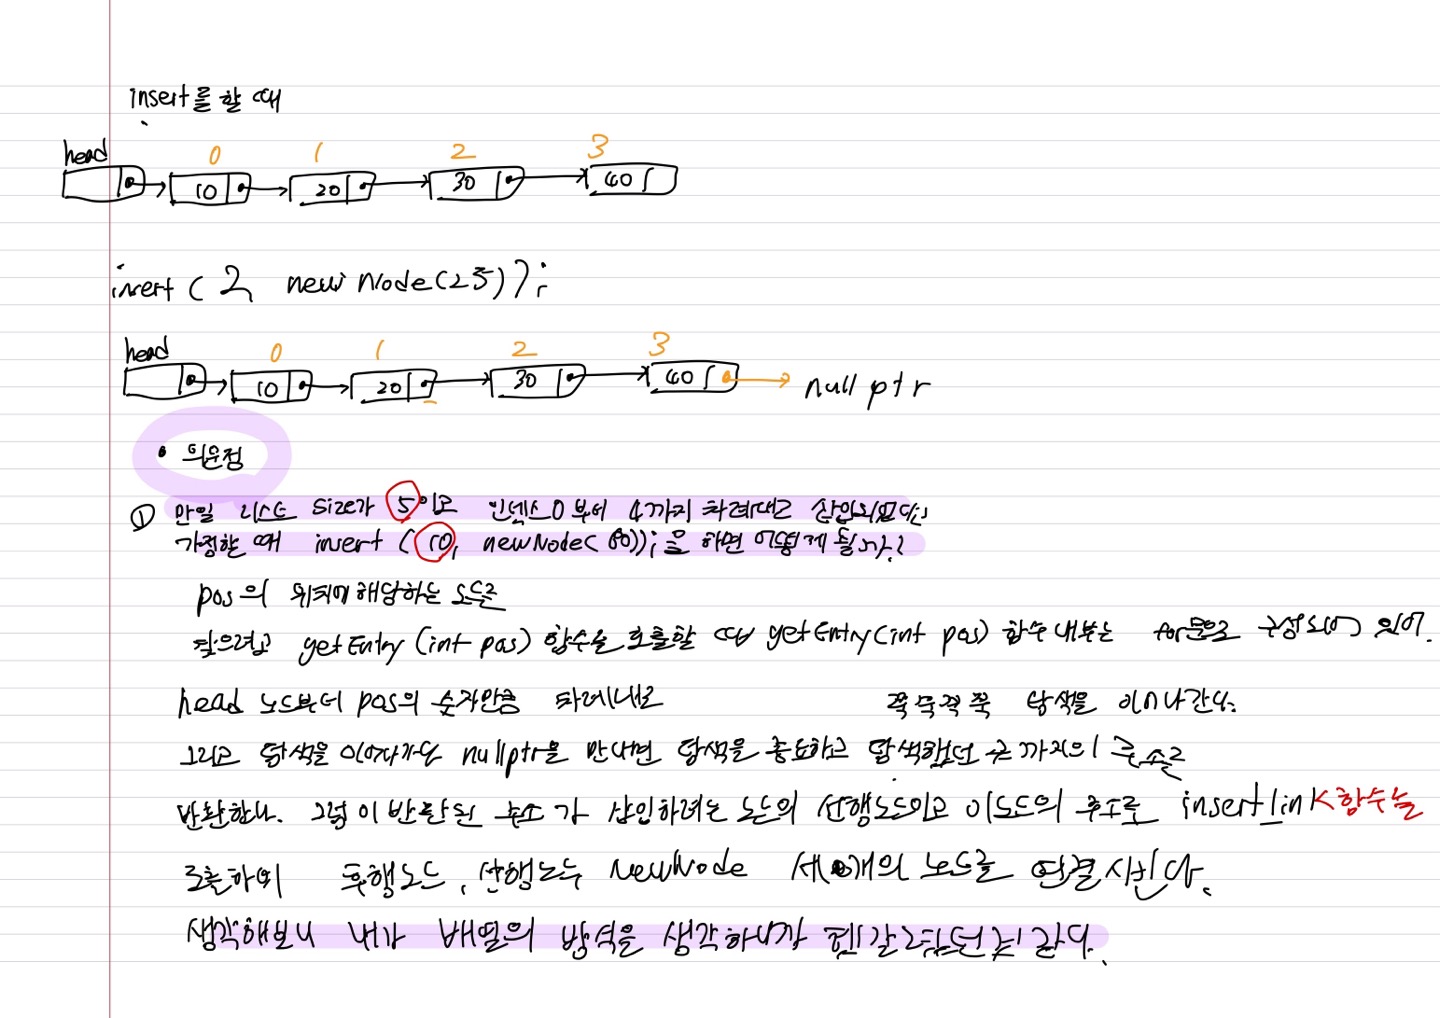 insert를 할 때
head 0 1 2 3
10 20 30 40
insert ( 2, new Node(25));
head 0 1 2 3
10 20 30 40 nullptr
• 의문점
① 만일 리스트 size가 5이고 인덱스 0부터 4까지 차례대로 삽입되었다고
가정한 때 insert (10, newNode( 80)); 을 하면 어떻게 될까?
pos의 위치에 해당하는 노드를
찾으려고 getEntry (int pos) 함수를 호출할 때 getEntry(int pos) 함수 내부는 for문으로 구성되어 있어.
head 노드부터 pos의 숫자만큼 차례대로 쭉쭉쭉쭉 탐색을 이어나간다.
그리고 탐색을 이어나가다 nullptr을 만나면 탐색을 종료하고 탐색했던 곳까지의 주소를
반환한다. 그럼 이 반환된 주소가 삽입하려는 노드의 선행노드이고 이 노드의 주소로 insert_link 함수를
호출하여 후행노드, 선행노드 newNode 세 개의 노드를 연결시킨다.
생각해보니 내가 배열의 방식을 생각하니까 헷갈렸던 것 같다.